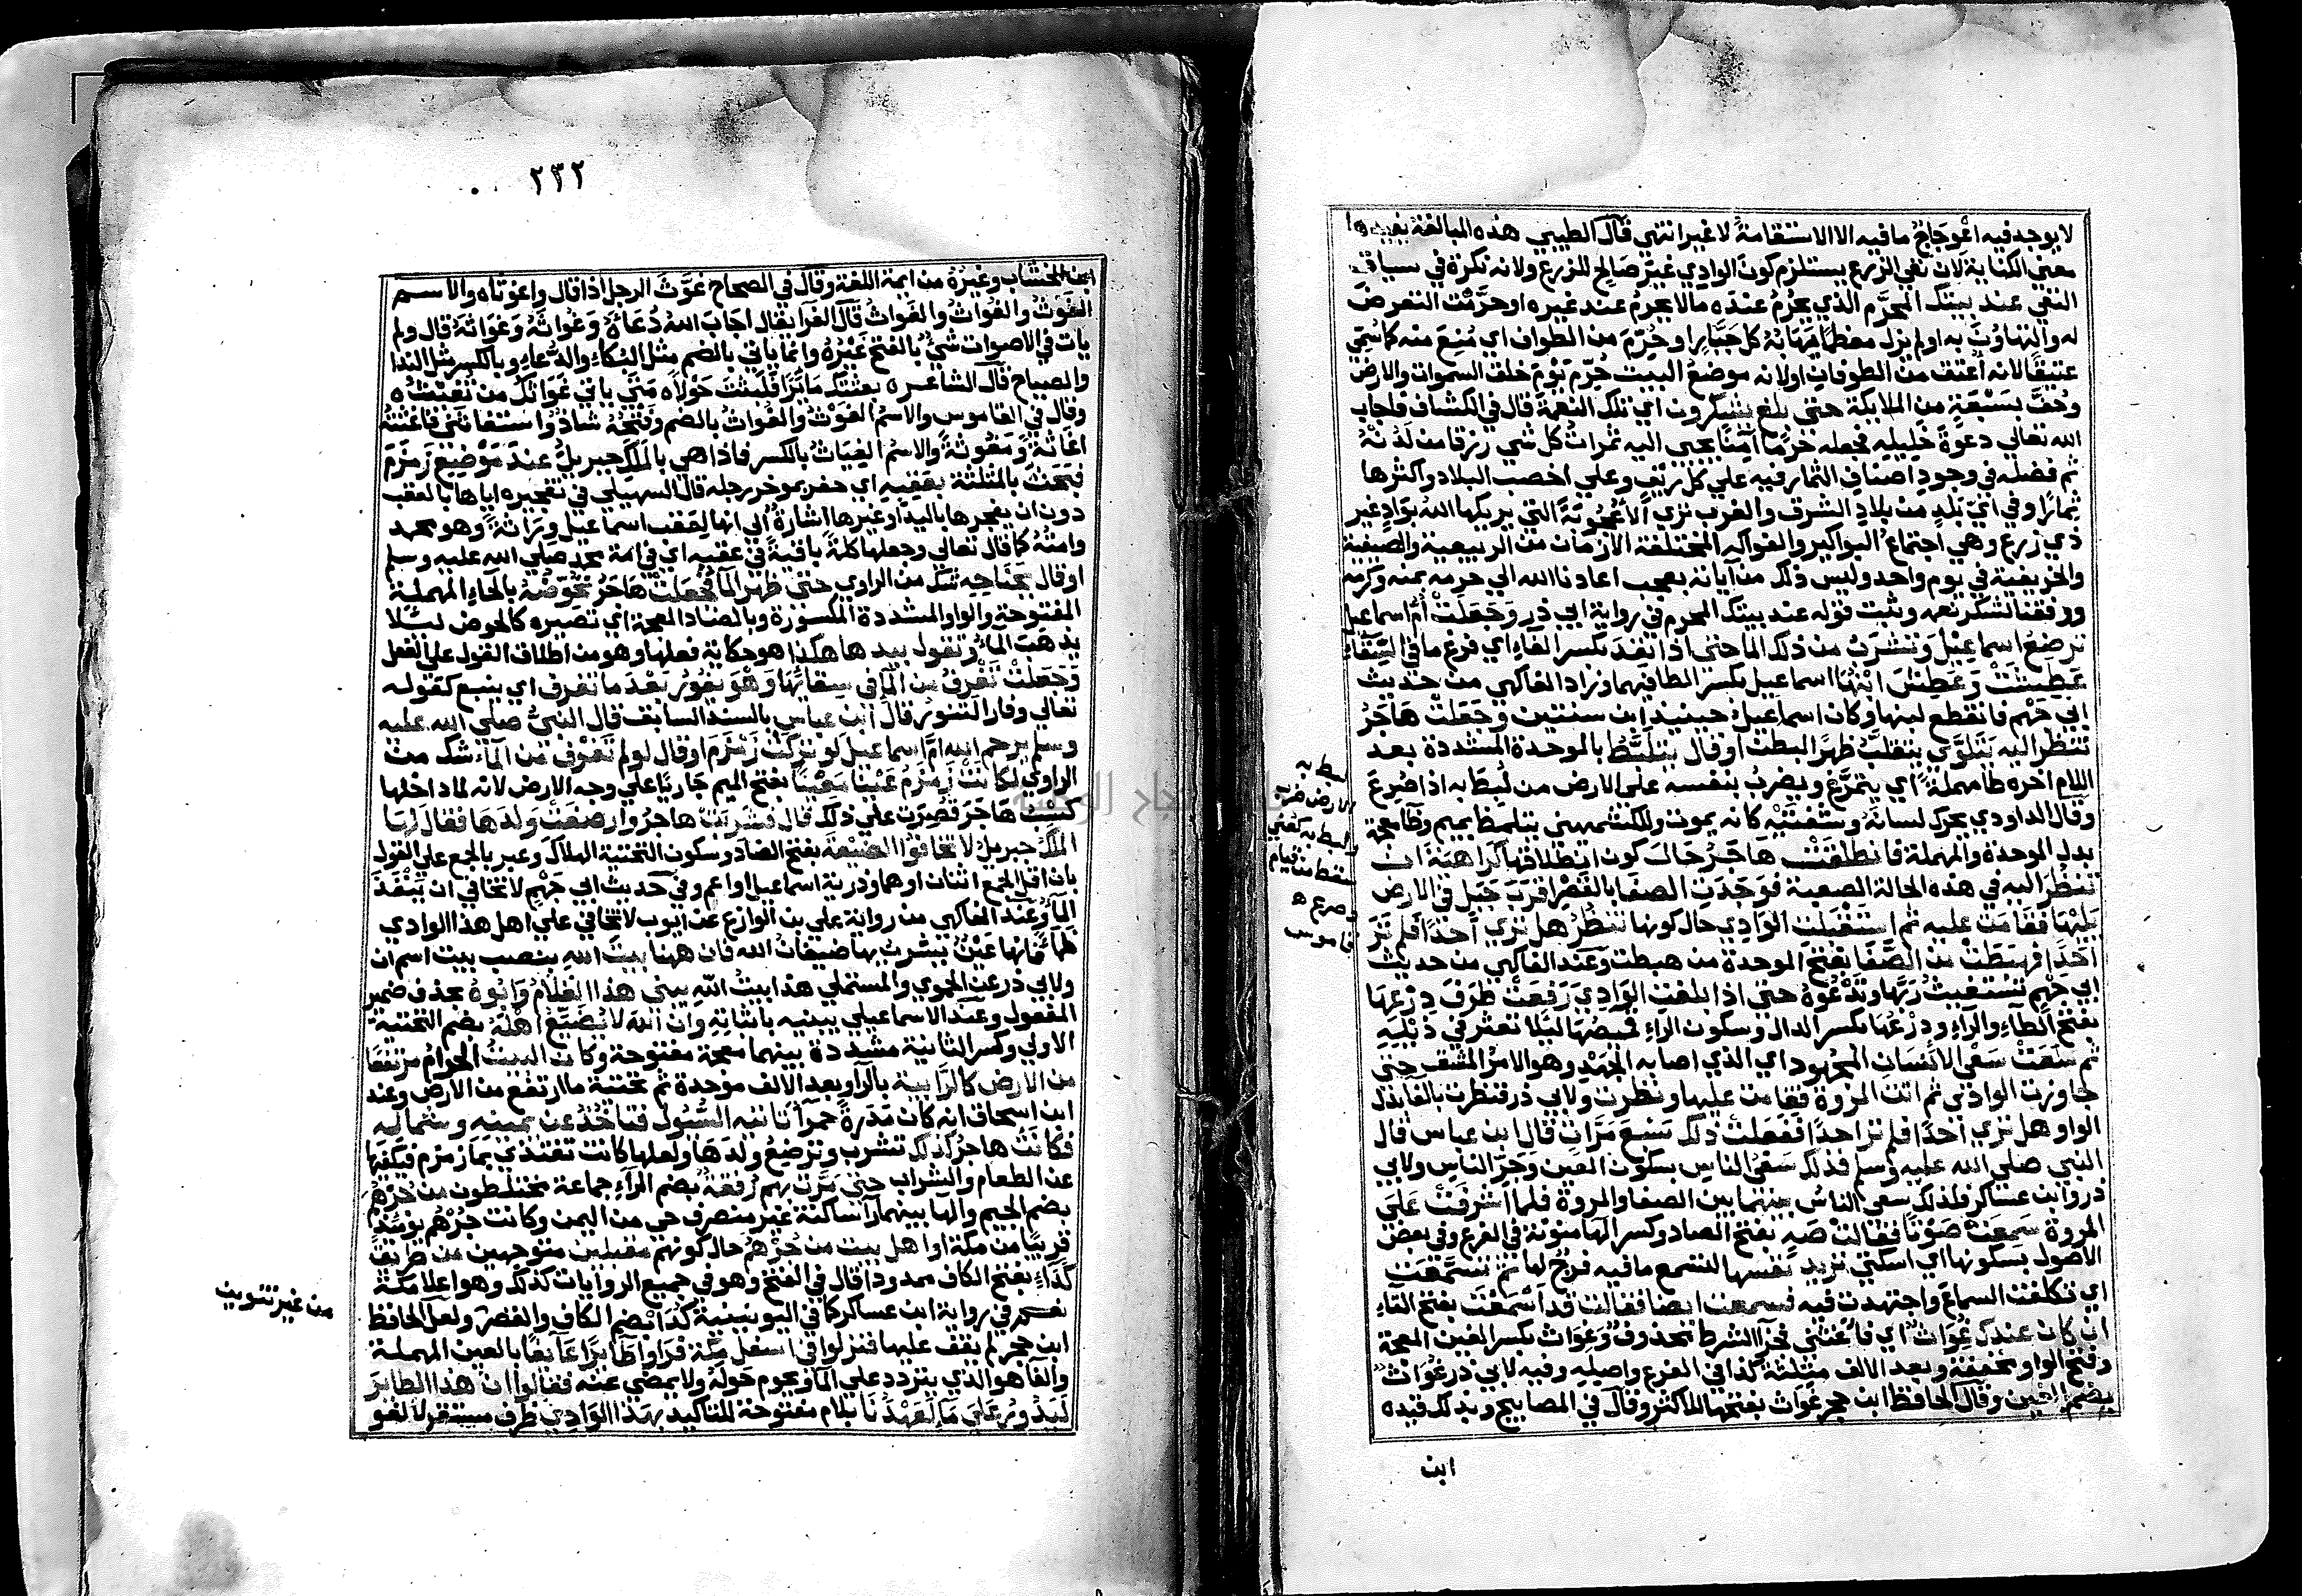 لا يوجد فيه اعوجاج ما فيه الا الاستقامة لا غير انتهي قال الطيبي هذه المبالغة يفيدها
معني الكناية لان نفي الزرع يستلزم كون الوادي غير صالح للزرع ولانه نكرة في سياق
النفي عند بيتك المحرم الذي يحرم عنده ما لا يحرم عند غيره او حرمت التعرض
له والتهاون به او لم يزل معظما يهابه كل جبار او حرم من الطوفان اي منع منه كما سمي
عتيقا لانه اعتق من الطوفان او لانه موضع البيت حرم يوم خلق السموات والارض
وحف بسبعة من الملايكة حتي بلغ يشكرون اي تلك النعمة قال في الكشاف فاجاب
الله تعالي دعوة خليله فجعله حرما آمنا يجبي اليه ثمرات كل شي رزقا من لدنه
ثم فضله في وجود اصناف الثمار فيه علي كل ريف وعلي اخصب البلاد واكثرها
ثمارا وفي اي بلد من بلاد الشرق والغرب تري الاعجوبة التي يريكها الله بواد غير
ذي زرع وهي اجتماع البواكير والفواكه المختلفة الازمان من الربيعية والصيفية
والخريفية في يوم واحد وليس ذلك من آياته بعجب اعادنا الله الي حرمه بمنه وكرمه
ووفقنا لشكر نعمه وثبت قوله عند بيتك المحرم في رواية ابي ذر وجعلت ام اسماعيل
ترضع اسماعيل وتشرب من ذلك الما حتي اذا نفد بكسر الفاء اي فرغ ما في السقاء
عطشت وعطش ابنها اسماعيل بكسر الطا فيهما وزاد الفاكهي من حديث
ابي جهم فانقطع لبنها وكان اسماعيل حينيذ ابن سنتين وجعلت هاجر
تنظر اليه يتلوي يتقلب ظهرا لبطن او قال يتلبط بالموحدة المشددة بعد
اللام اخره طا مهملة اي يتمرغ ويضرب بنفسه علي الارض من لبط به اذا صرع
وقال الداودي يحرك لسانه وشفتيه كانه يموت وللكشميهني يتلمظ بميم وظا معجمة
بدل الموحدة والمهملة فانطلقت هاجر حال كون انطلاقها كراهية ان
تنظر اليه في هذه الحالة الصعبة فوجدت الصفا بالقصر اقرب جبل في الارض
يليها فقامت عليه ثم استقبلت الوادي حال كونها تنظر هل تري احدا فلم تر
احدا فهبطت من الصفا بفتح الموحدة من هبطت وعند الفاكهي من حديث
ابي جهم تستغيث ربها وتدعوه حتي اذا بلغت الوادي رفعت طرف درعها
بفتح الطاء والراء ودرعها بكسر الدال وسكون الراء قميصها ليلا تعثر في ذيله
ثم سعت سعي الانسان المجهود اي الذي اصابه الجهد وهو الامر المشق حتي
جاوزت الوادي ثم اتت المروة فقامت عليها ونظرت ولابي ذر فنظرت بالفا بدل
الواو هل تري احدا فلم تر احدا ففعلت ذلك سبع مرات قال ابن عباس قال
النبي صلي الله عليه وسلم فذلك سعي الناس بسكون العين وجر الناس ولابي
ذر وابن عساكر فلذلك سعي الناس بينهما بين الصفا والمروة فلما اشرفت علي
المروة سمعت صوتا فقالت صه بفتح الصاد وكسر الها منونة في الفرع وفي بعض
الاصول بسكونها اي اسكتي تريد نفسها لتسمع ما فيه فرج لها ثم تسمعت
اي تكلفت السماع واجتهدت فيه فسمعت ايضا فقالت قد اسمعت بفتح التاء
ان كان عندك غواث اي فاغثني فجزا الشرط محذوف وغواث بكسر الغين المعجمة
وفتح الواو مخففة وبعد الالف مثلثة كذا في الفرع واصله وفيه لابي ذر غواث
بضم الغين وقال الحافظ ابن حجر غواث بفتحها للاكثر وقال في المصابيح وبذلك قيده
ابن
لبط به
الارض ضرب
ولبط به كعني
سقط من قيام
وصرع ه
قاموس
٢٣٢
ابن الخشاب وغيره من ايمة اللغة وقال في الصحاح غوث الرجل اذا قال واغوثاه والاسم
الغوث والغواث والغواث قال الفرا يقال اجاب الله دعاه وغواثه وغواثه قال ولم
يات في الاصوات شي بالفتح غيره وانما ياتي بالضم مثل البكاء والدعاء وبالكسر مثل الندا
والصياح قال الشاعر ه بعثتك مايرا فلبثت حولا ه متي ياتي غواثك من تغيث ه
وقال في القاموس والاسم الغوث والغواث بالضم وفتحه شاذ واستغاثني فاغثته
اغاثة ومغوثة والاسم الغياث بالكسر فاذا هي بالملك جبريل عند موضع زمزم
فبحث بالمثلثة بعقبه اي حفر بموخر رجله قال السهيلي في تفجيره اياها بالعقب
دون ان يفجرها باليد او غيرها اشارة الي انها لعقب اسماعيل وراثة وهو محمد
وامته كما قال تعالي وجعلها كلمة باقية في عقبه اي في امة محمد صلي الله عليه وسلم
او قال بجناحه شك من الراوي حتي ظهر الما فجعلت هاجر تحوضه بالحاء المهملة
المفتوحة والواو المشددة المكسورة وبالضاد المعجمة اي تصيره كالحوض ليلا
يذهب الما وتقول بيدها هكذا هو حكاية فعلها وهو من اطلاق القول علي الفعل
وجعلت تغرف من الما في سقايها وهو يفور بعد ما تغرف اي ينبع كقوله
تعالي وفار التنور قال ابن عباس بالسند السابق قال النبي صلي الله عليه
وسلم يرحم الله ام اسماعيل لو تركت زمزم او قال لو لم تغرف من الما شك من
الراوي لكانت زمزم عينا معينا بفتح الميم جاريا علي وجه الارض لانه لما داخلها
كسب هاجر قصرت علي ذلك قال فشربت هاجر وارضعت ولدها فقال لها
الملك جبريل لا تخافوا الضيعة بفتح الضاد وسكون التحتية الهلاك وعبر بالجمع علي القول
بان اقل الجمع اثنان او هما وذرية اسماعيل او اعم وفي حديث ابي جهم لا تخافي ان ينفد
الما وعند الفاكهي من رواية علي بن الوازع عن ايوب لا تخافي علي اهل هذا الوادي
ظما فانها عين يشرب بها ضيفان الله فان ههنا بيت الله بنصب بيت اسم ان
ولابي ذر عن الحموي والمستملي هذا بيت الله يبني هذا الغلام وابوه بحذف ضمير
المفعول وعند الاسماعيلي يبنيه باثباته وان الله لا يضيع اهله بضم التحتية
الاولي وكسر الثانية مشددة بينهما معجمة مفتوحة وكان البيت الحرام مرتفعا
من الارض كالرابية بالراء وبعد الالف موحدة ثم تحتية ما ارتفع من الارض وعند
ابن اسحاق انه كان مدرة حمرا تاتيه السيول فتاخذ عن يمينه وشماله
فكانت هاجر كذلك تشرب وترضع ولدها ولعلها كانت تغتذي بما زمزم فيكفيها
عن الطعام والشراب حتي مرت بهم رفقة بضم الراء جماعة مختلطون من جرهم
بضم الجيم والها بينهما را ساكنة غير منصرف حي من اليمن وكانت جرهم يوميذ
قريبا من مكة او اهل بيت من جرهم حال كونهم مقبلين متوجهين من طريق
كداء بفتح الكاف ممدودا قال في الفتح وهو في جميع الروايات كذلك وهو اعلا مكة
نعم في رواية ابن عساكر كما في اليونينية كدا بضم الكاف والقصر ولعل الحافظ
ابن حجر لم يقف عليها فنزلوا في اسفل مكة فراوا طايرا عايفا بالعين المهملة
والفا هو الذي يتردد علي الما ويحوم حوله ولا يمضي عنه فقالوا ان هذا الطاير
ليدور علي ما لعهدنا بلام مفتوحة للتاكيد بهذا الوادي ظرف مستقر لا لغو
من غير تنوين